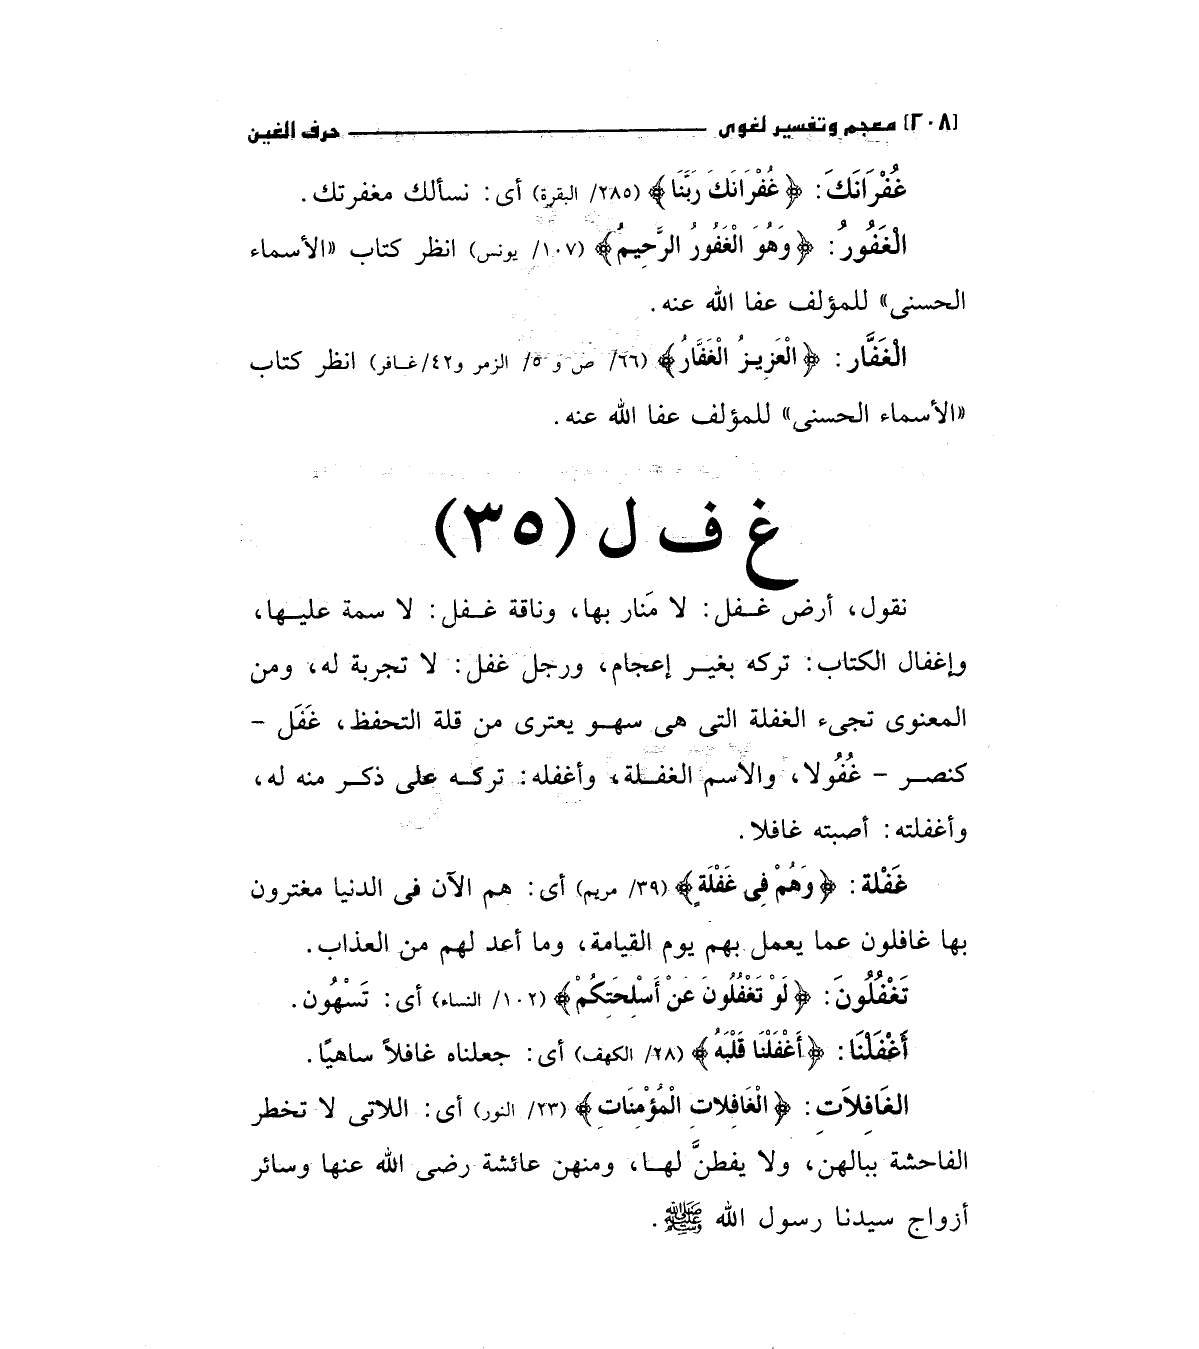 [٢٠٨] معجم وتفسير لغوى ــــــــــ حرف الغين
غُفْرَانَكَ: ﴿غُفْرَانَكَ رَبَّنَا﴾ (٢٨٥/ البقرة) أى: نسألك مغفرتك.
الْغَفُورُ: ﴿وَهُوَ الْغَفُورُ الرَّحِيمُ﴾ (١٠٧/ يونس) انظر كتاب «الأسماء
الحسنى» للمؤلف عفا الله عنه.
الْغَفَّار: ﴿الْعَزِيزُ الْغَفَّارُ﴾ (٦٦/ ص و٥/ الزمر و٤٢/غافر) انظر كتاب
«الأسماء الحسنى» للمؤلف عفا الله عنه.
غ ف ل (٣٥)
نقول، أرض غفل: لا مَنار بها، وناقة غفل: لا سمة عليها،
وإغفال الكتاب: تركه بغير إعجام، ورجل غفل: لا تجربة له، ومن
المعنوى تجىء الغفلة التى هى سهو يعترى من قلة التحفظ، غَفَل -
كنصر - غُفُولا، والاسم الغفلة، وأغفله: تركه على ذكر منه له،
وأغفلته: أصبته غافلا.
غَفْلة: ﴿وَهُمْ فِى غَفْلَةٍ﴾ (٣٩/ مريم) أى: هم الآن فى الدنيا مغترون
بها غافلون عما يعمل بهم يوم القيامة، وما أعد لهم من العذاب.
تَغْفُلُونَ: ﴿لَوْ تَغْفُلُونَ عَنْ أَسْلِحَتِكُمْ﴾ (١٠٢/ النساء) أى: تَسْهُون.
أَغْفَلْنَا: ﴿أَغْفَلْنَا قَلْبَهُ﴾ (٢٨/ الكهف) أى: جعلناه غافلاً ساهيًا.
الغَافِلاَتِ: ﴿الْغَافِلاتِ الْمُؤْمِنَاتِ﴾ (٢٣/ النور) أى: اللاتى لا تخطر
الفاحشة ببالهن، ولا يفطنَّ لها، ومنهن عائشة رضى الله عنها وسائر
أزواج سيدنا رسول الله ﷺ.